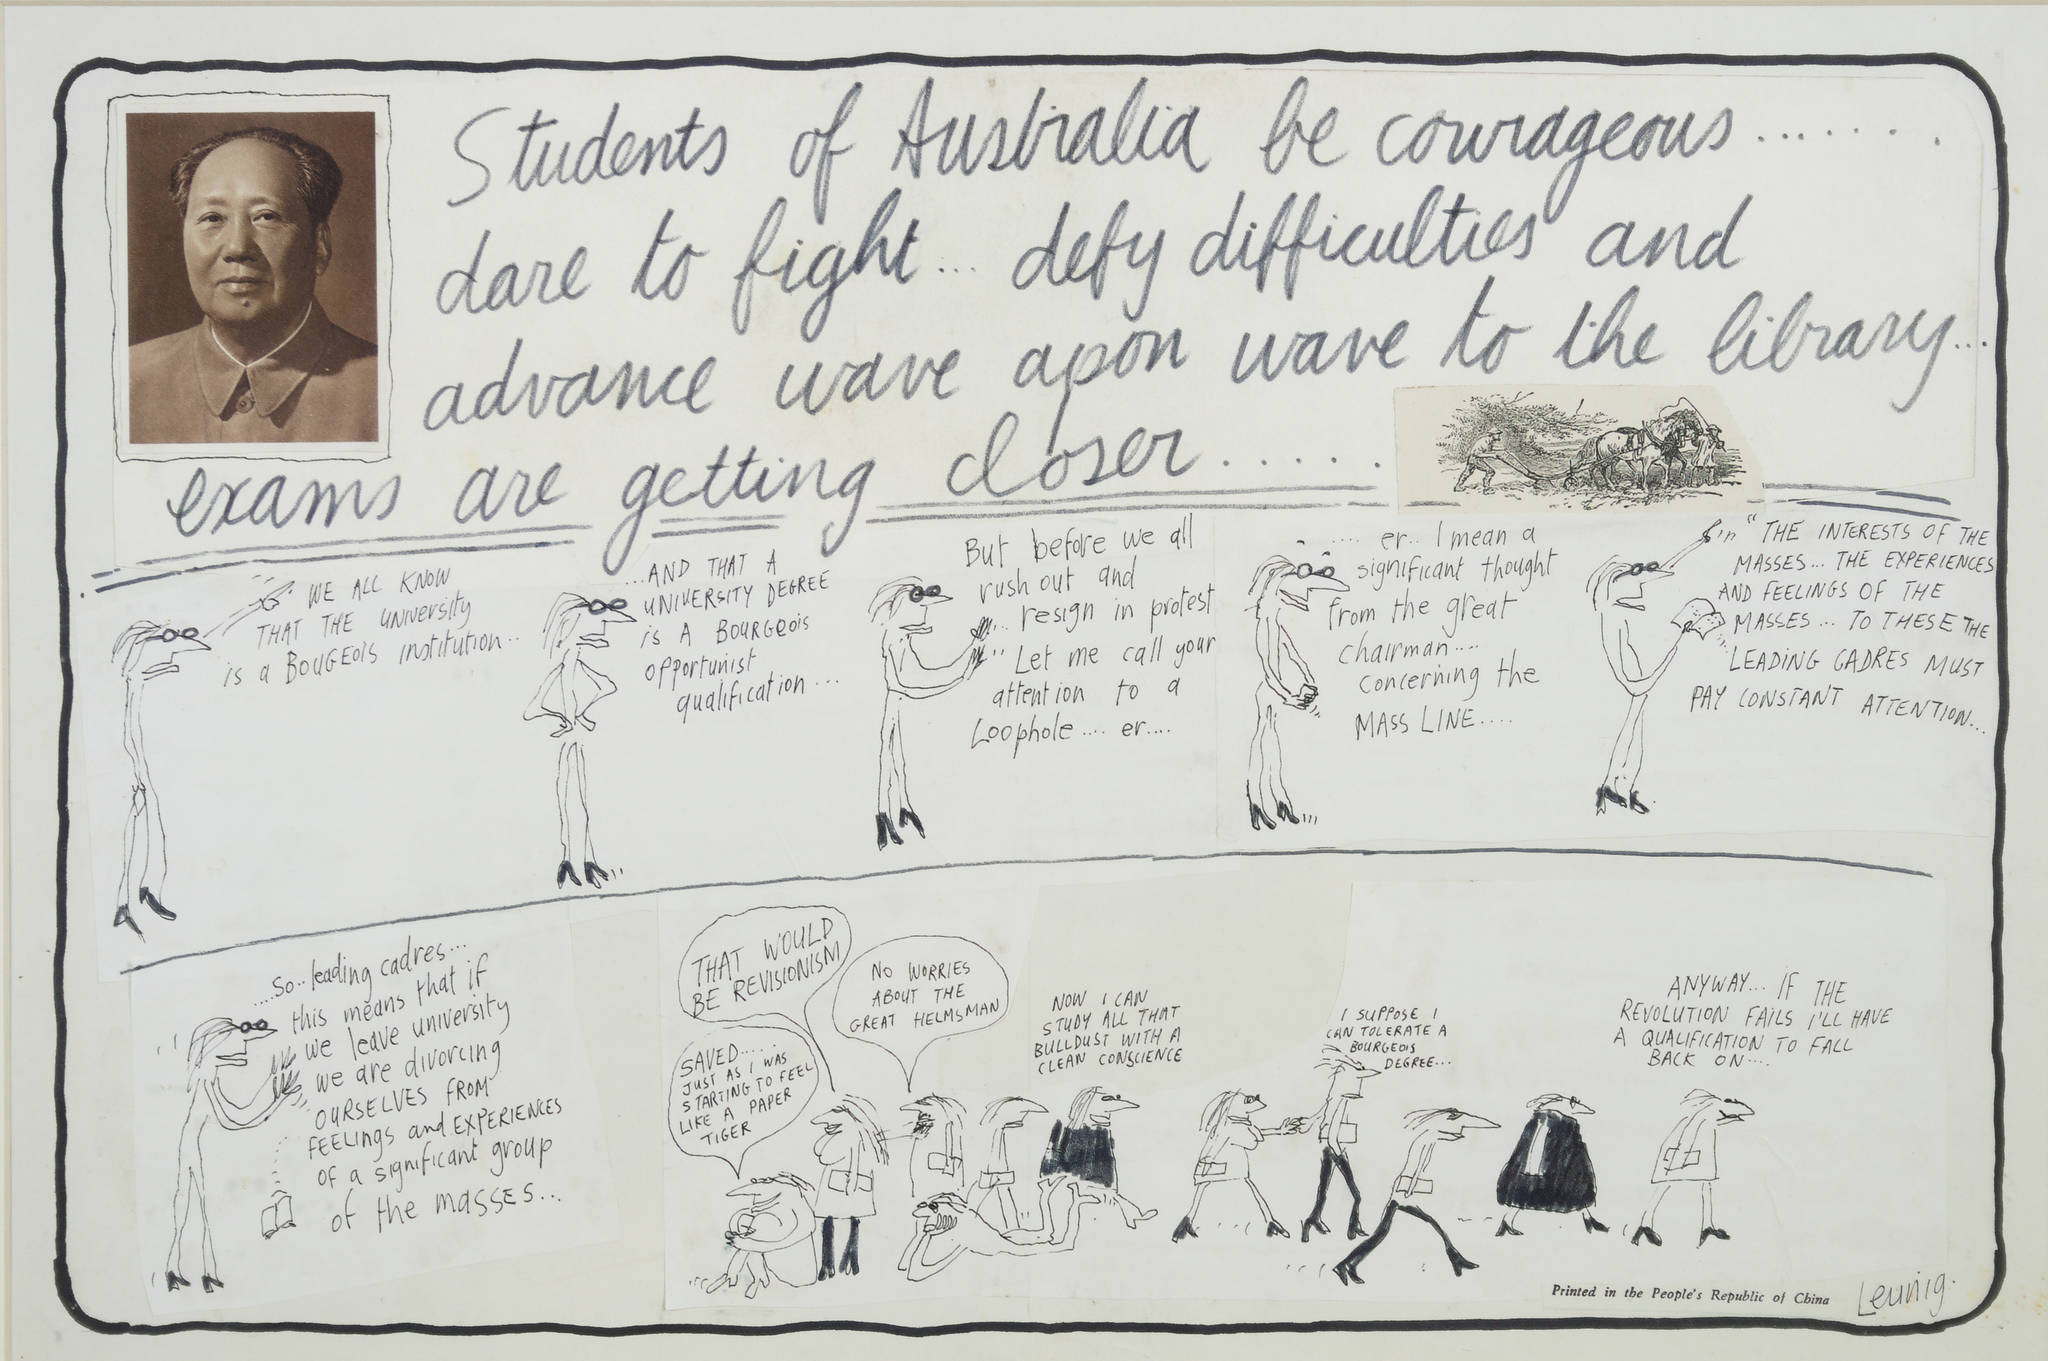 Students of Australia be courageous.......
dare to fight... defy difficulties and
advance wave apon wave to the library...
exams are getting closer......
WE ALL KNOW
THAT THE UNIVERSITY
is a BOUGEOIS institution...
...AND THAT A
UNIVERSITY DEGREE
is A BOURGEOIS
opportunist
qualification....
But before we all
rush out and
resign in protest
... Let me call your
attention to a
Loophole.... er....
..... er.. I mean a
significant thought
from the great
chairman....
concerning the
MASS LINE....
"THE INTERESTS OF THE
MASSES... THE EXPERIENCES
AND FEELINGS OF THE
MASSES... TO THESE THE
LEADING CADRES MUST
PAY CONSTANT ATTENTION...
....So.. leading cadres...
this means that if
we leave university
we are divorcing
OURSELVES FROM
FEELINGS and EXPERIENCES
OF a significant group
of the masses...
THAT WOULD
BE REVISIONISM
NO WORRIES
ABOUT THE
GREAT HELMSMAN
SAVED.....
JUST AS I WAS
STARTING TO FEEL
LIKE A PAPER
TIGER
NOW I CAN
STUDY ALL THAT
BULLDUST WITH A
CLEAN CONSCIENCE
I SUPPOSE I
CAN TOLERATE A
BOURGEOIS
DEGREE...
ANYWAY... IF THE
REVOLUTION FAILS I'LL HAVE
A QUALIFICATION TO FALL
BACK ON....
Printed in the People's Republic of China
Leunig.